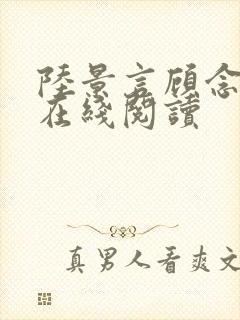 陸景言顾念
在綫閱讀
真男人看爽文